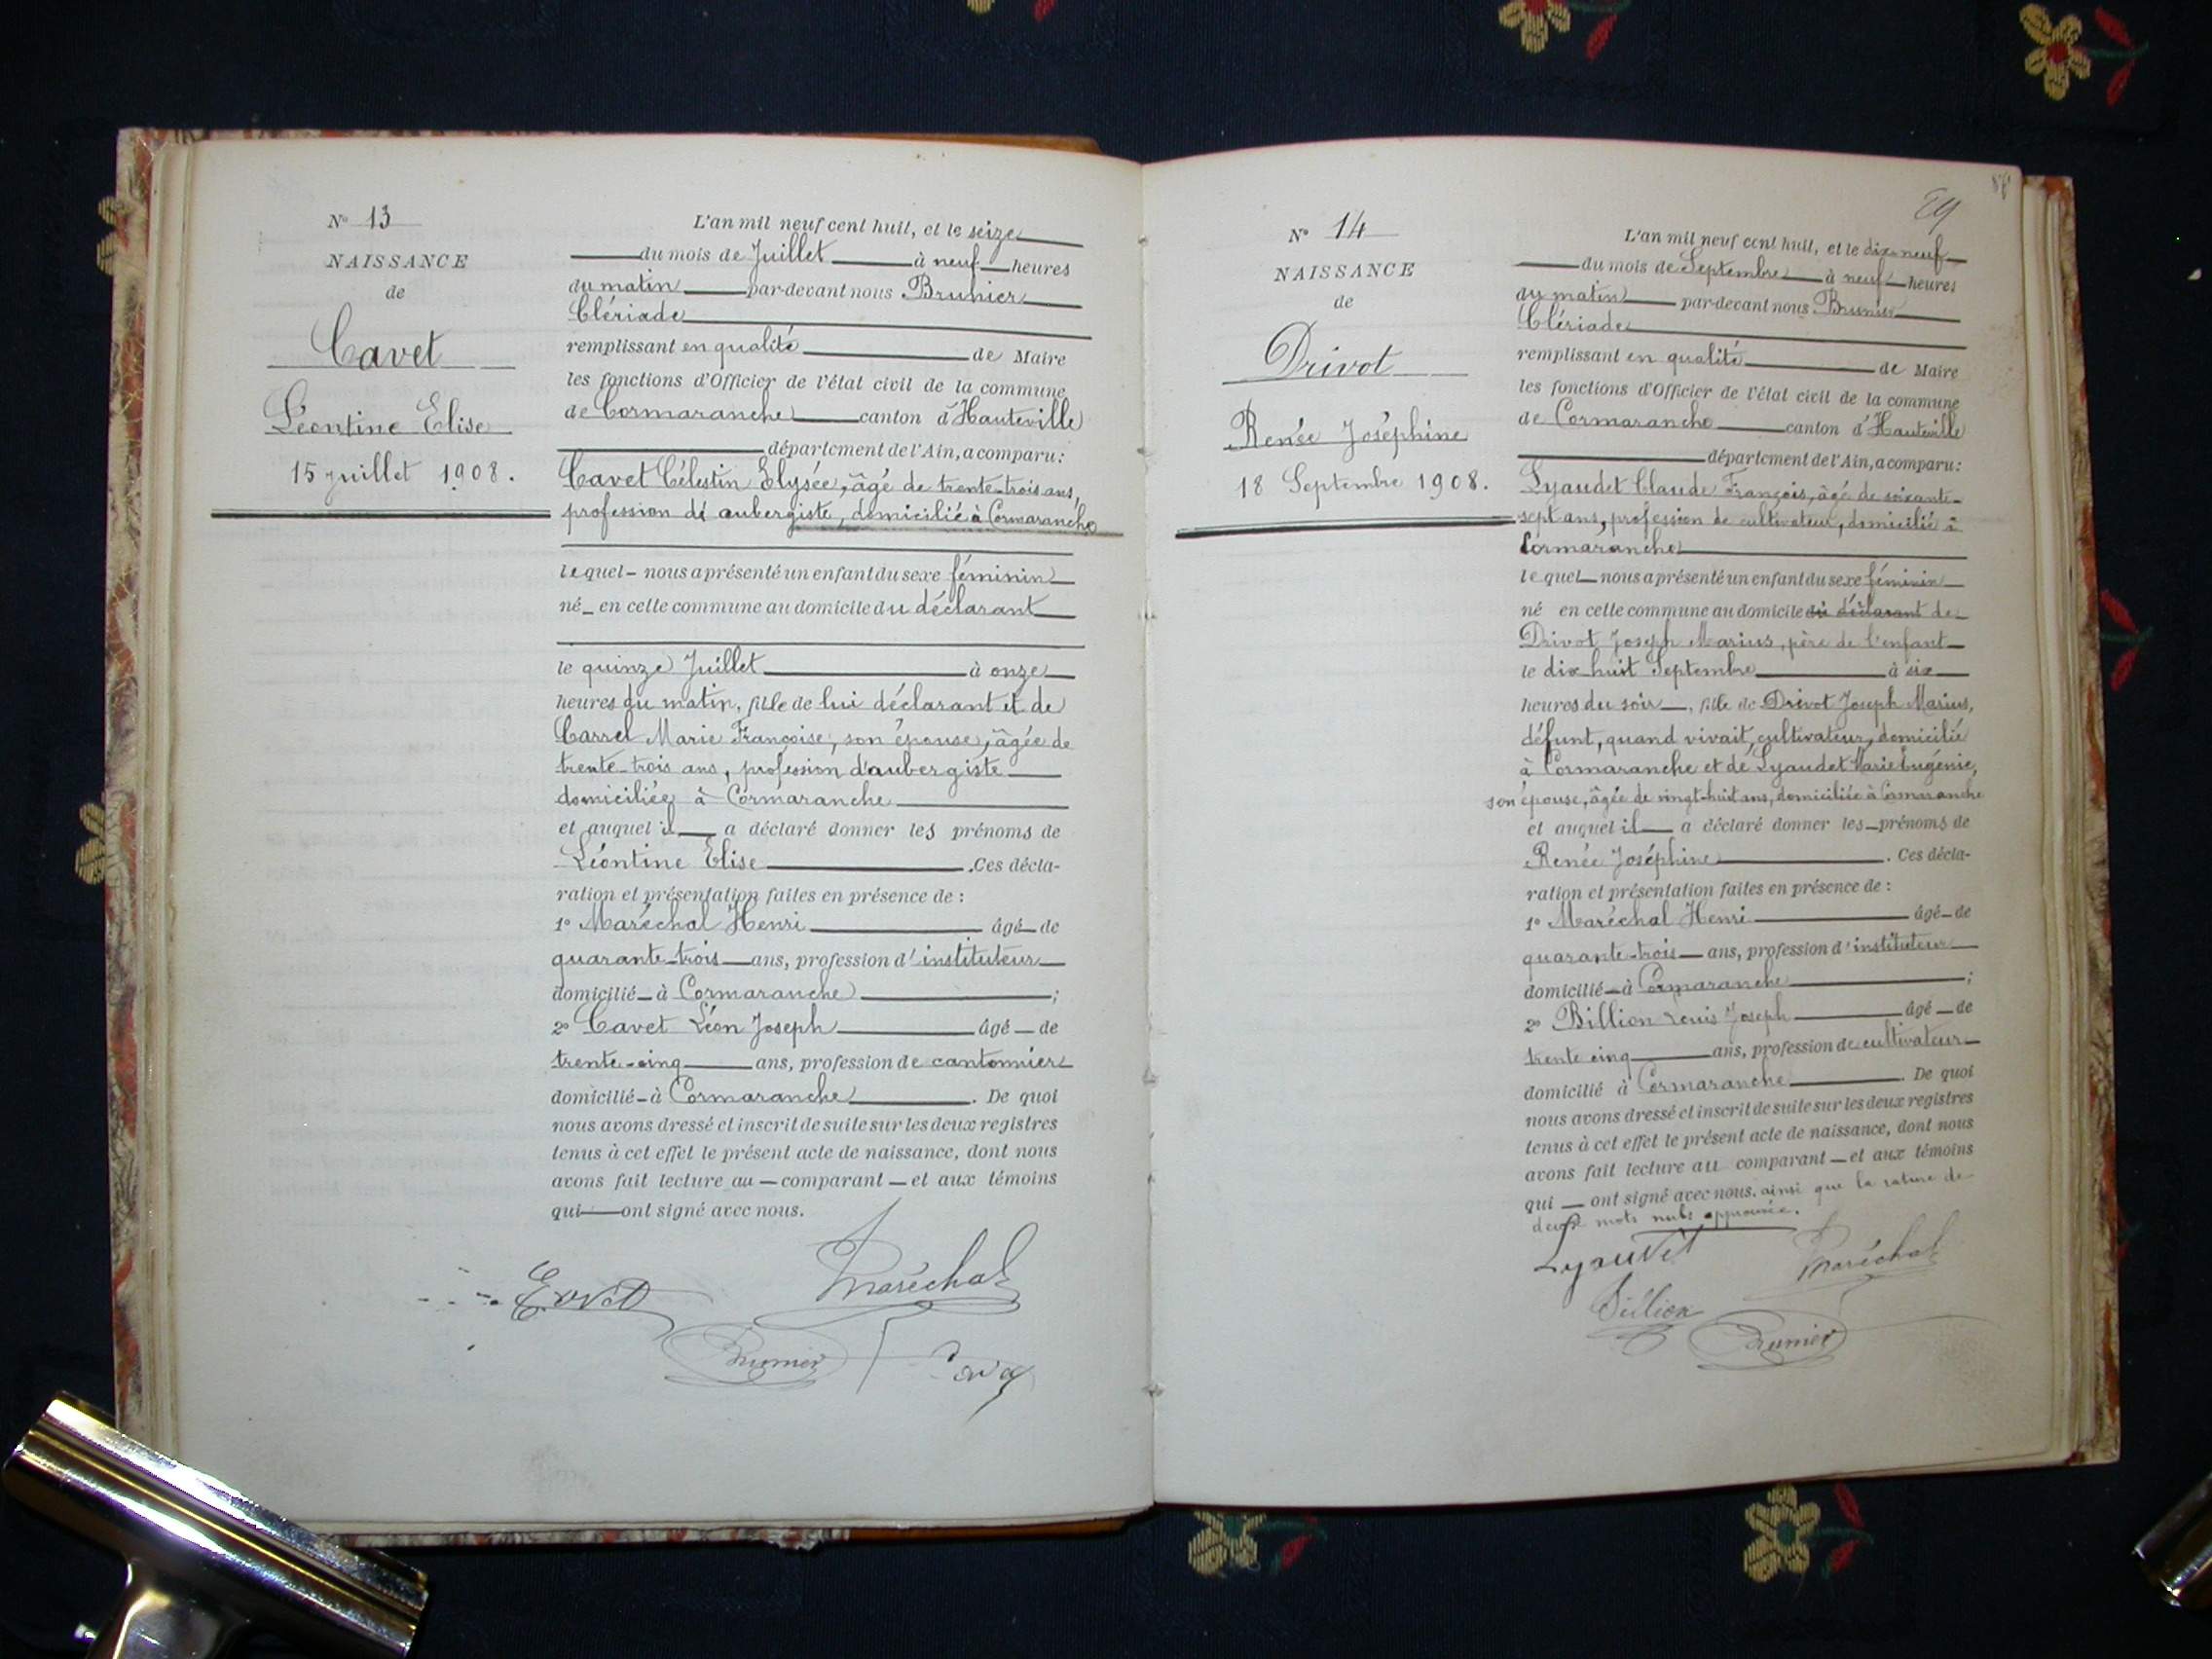 N° 13
NAISSANCE
de
Cavet
Léontine Elise
15 juillet 1908.
L'an mil neuf cent huit, et le seize
du mois de Juillet à neuf heures
du matin par-devant nous Brunier
Clériade
remplissant en qualité de Maire
les fonctions d'Officier de l'état civil de la commune
de Cormaranche canton d'Hauteville
département de l'Ain, a comparu:
Cavet Célestin Elysée, âgé de trente-trois ans,
profession de aubergiste, domicilié à Cormaranche
lequel nous a présenté un enfant du sexe féminin
né en cette commune au domicile du déclarant
le quinze Juillet à onze
heures du matin, fille de lui déclarant et de
Carrel Marie Françoise, son épouse, âgée de
trente-trois ans, profession d'aubergiste
domiciliée à Cormaranche
et auquel il a déclaré donner les prénoms de
Léontine Elise. Ces décla-
ration et présentation faites en présence de :
1° Maréchal Henri âgé de
quarante-trois ans, profession d'instituteur
domicilié à Cormaranche ;
2° Cavet Léon Joseph âgé de
trente-cinq ans, profession de cantonnier
domicilié à Cormaranche. De quoi
nous avons dressé et inscrit de suite sur les deux registres
tenus à cet effet le présent acte de naissance, dont nous
avons fait lecture au comparant et aux témoins
qui ont signé avec nous.
Maréchal
Brunier
29
N° 14
NAISSANCE
de
Drivot
Renée Joséphine
18 Septembre 1908.
L'an mil neuf cent huit, et le dix-neuf
du mois de Septembre à neuf heures
du matin par-devant nous Brunier
Clériade
remplissant en qualité de Maire
les fonctions d'Officier de l'état civil de la commune
de Cormaranche canton d'Hauteville
département de l'Ain, a comparu:
Lyaudet Claude François, âgé de soixante-
sept ans, profession de cultivateur, domicilié à
Cormaranche
lequel nous a présenté un enfant du sexe féminin
né en cette commune au domicile du déclarant de
Drivot Joseph Marius, père de l'enfant
le dix huit Septembre à six
heures du soir, fille de Drivot Joseph Marius,
défunt, quand vivait, cultivateur, domicilié
à Cormaranche et de Lyaudet Marie Eugénie,
son épouse, âgée de vingt-huit ans, domiciliée à Cormaranche
et auquel il a déclaré donner les prénoms de
Renée Joséphine. Ces décla-
ration et présentation faites en présence de :
1° Maréchal Henri âgé de
quarante-trois ans, profession d'instituteur
domicilié à Cormaranche ;
2° Billion Louis Joseph âgé de
trente cinq ans, profession de cultivateur
domicilié à Cormaranche. De quoi
nous avons dressé et inscrit de suite sur les deux registres
tenus à cet effet le présent acte de naissance, dont nous
avons fait lecture au comparant et aux témoins
qui ont signé avec nous. ainsi que la rature de
deux mots nuls approuvée.
Lyaudet
Maréchal
Billion
Brunier